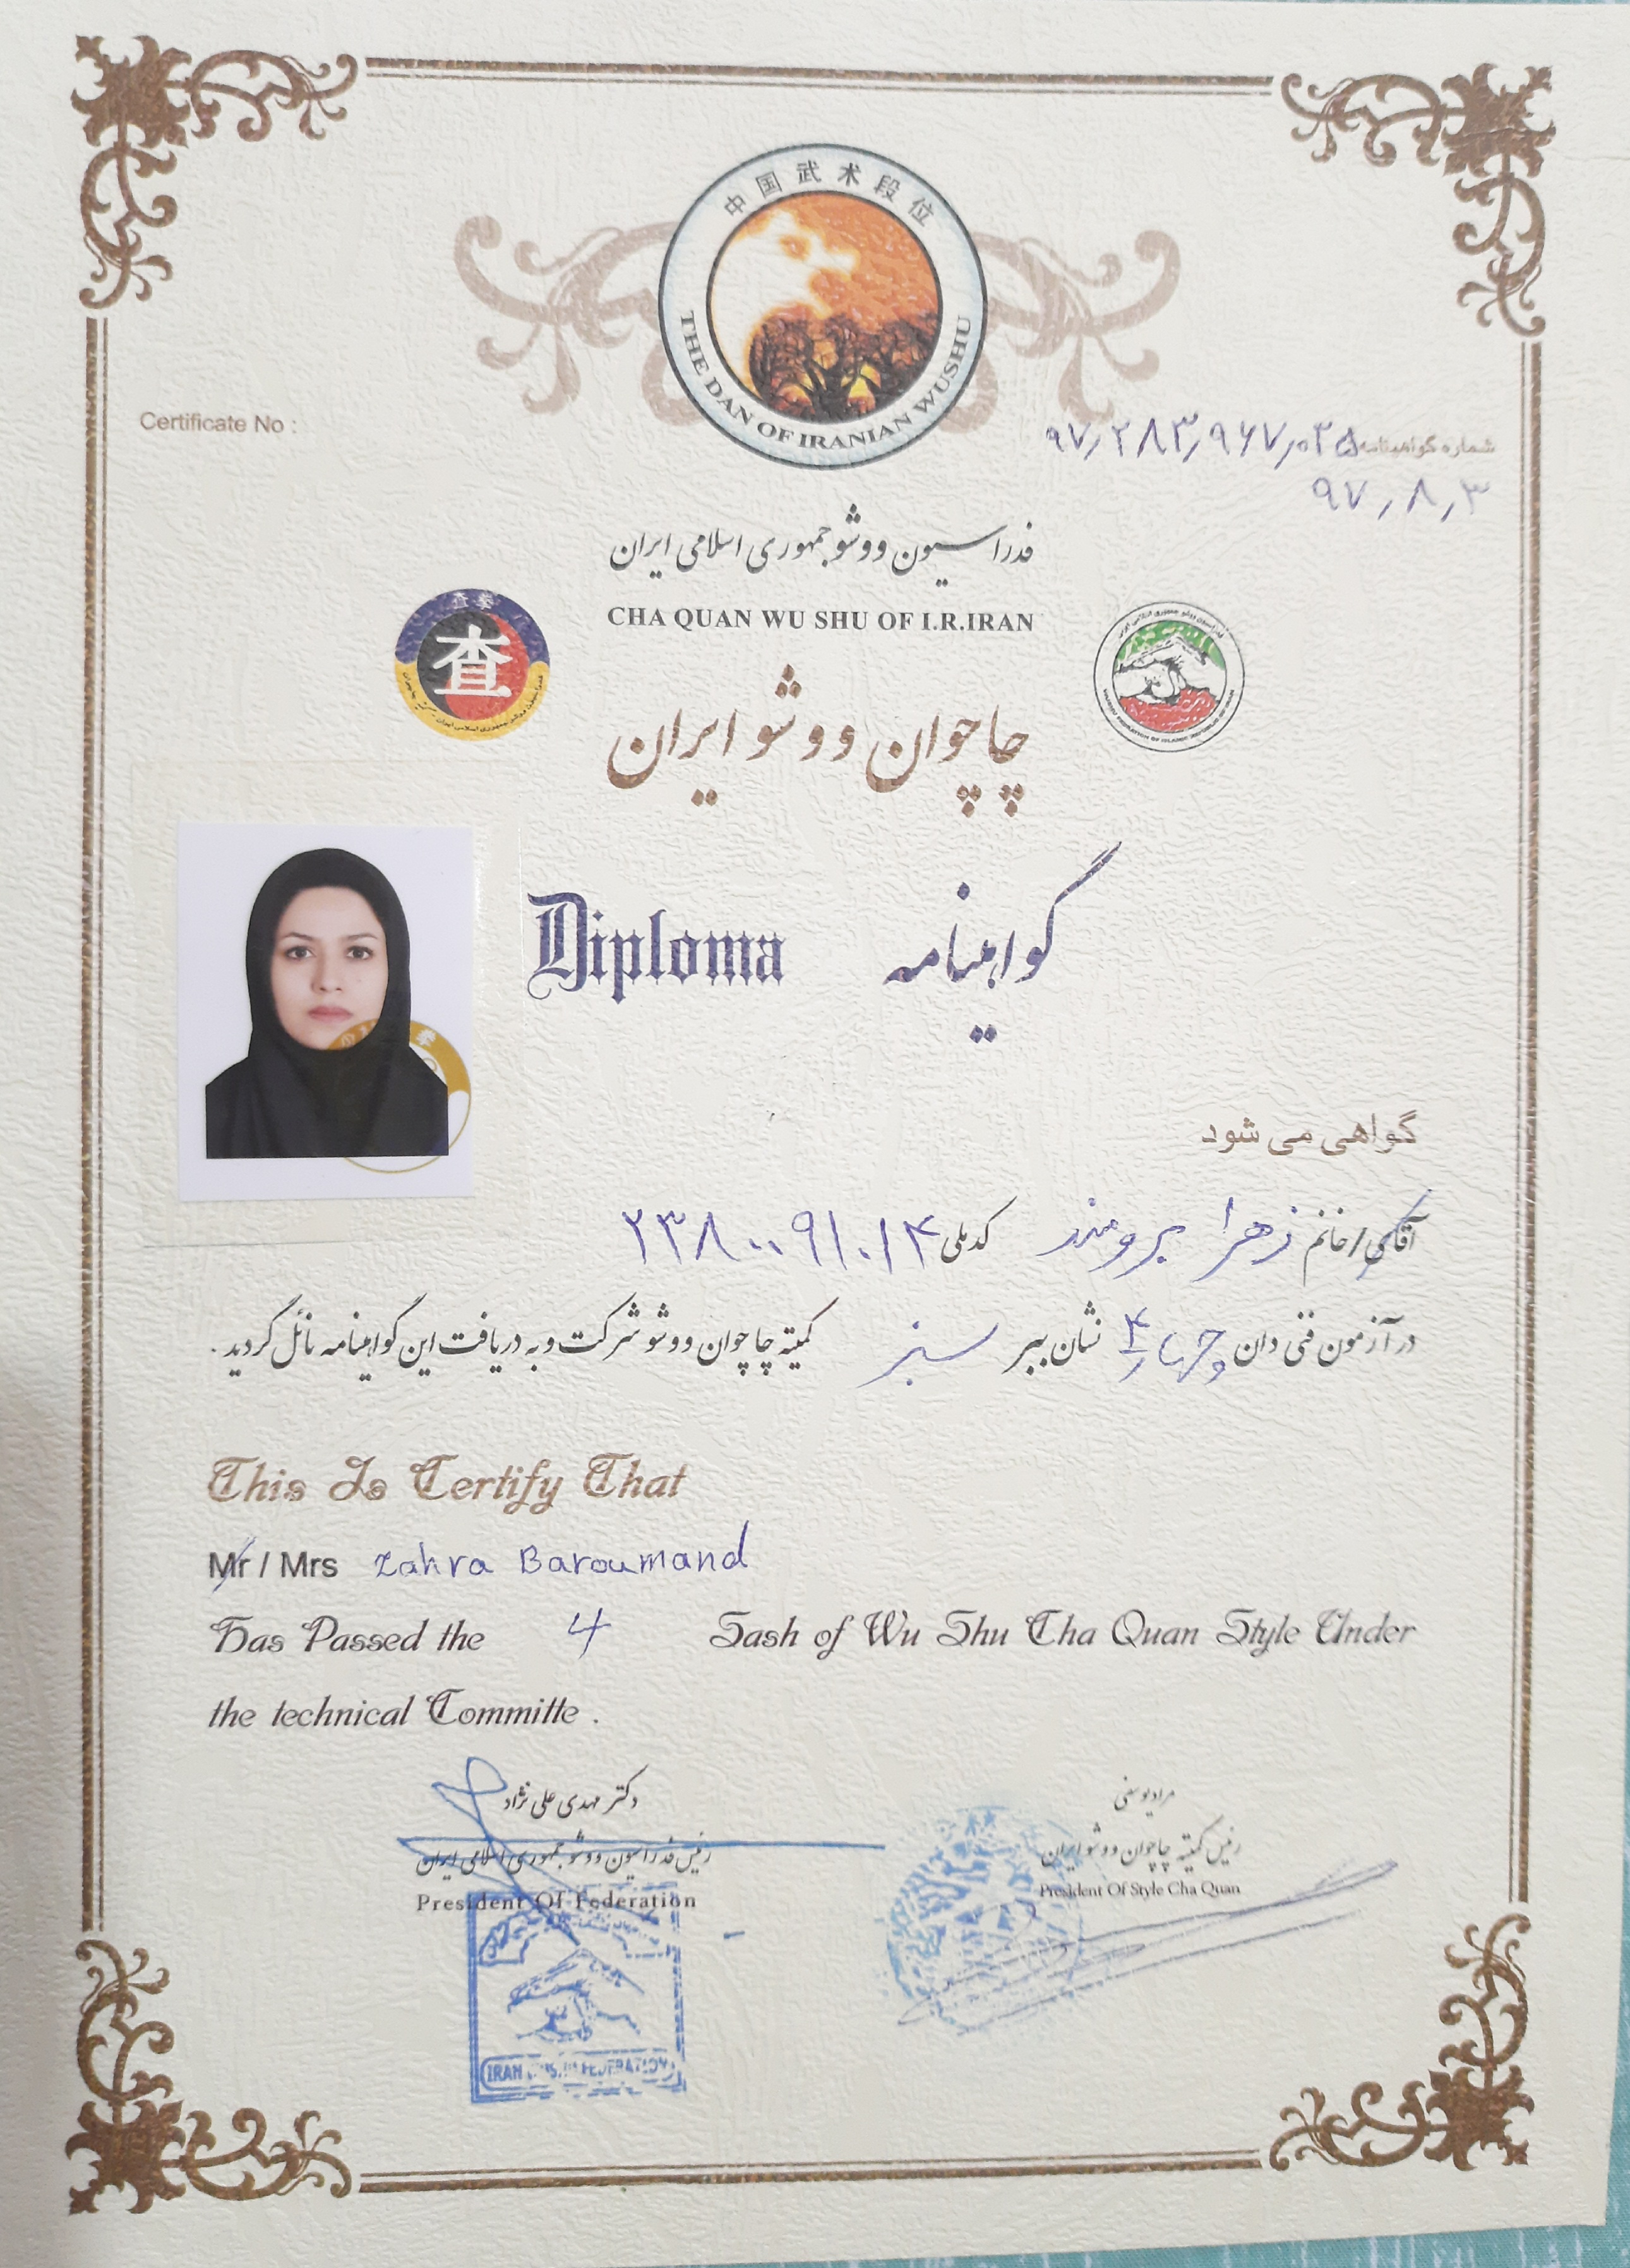 中国武术段位
THE DAN OF IRANIAN WUSHU
Certificate No :
شماره گواهینامه ۹۷٫۲۸۳٫۹۶۷٫۰۲۵
۹۷٫۸٫۳
فدراسیون ووشو جمهوری اسلامی ایران
CHA QUAN WU SHU OF I.R.IRAN
查拳
查
چاچوان ووشو ایران
Diploma گواهینامه
گواهی می شود
آقای/خانم زهرا برومند کدملی ۲۳۸۰۰۹۱۰۱۴
در آزمون فنی دان چهار ۴ نشان ببر سبز کمیته چاچوان ووشو شرکت و به دریافت این گواهینامه نائل گردید .
This Is Certify That
Mr / Mrs Zahra Baroumand
Has Passed the 4 Sash of Wu Shu Cha Quan Style Under
the technical Committe .
دکتر مهدی علی نژاد
رئیس فدراسیون ووشو جمهوری اسلامی ایران
President Of Federation
IRAN WUSHU FEDERATION
مراد یوسفی
رئیس کمیته چاچوان ووشو ایران
President Of Style Cha Quan